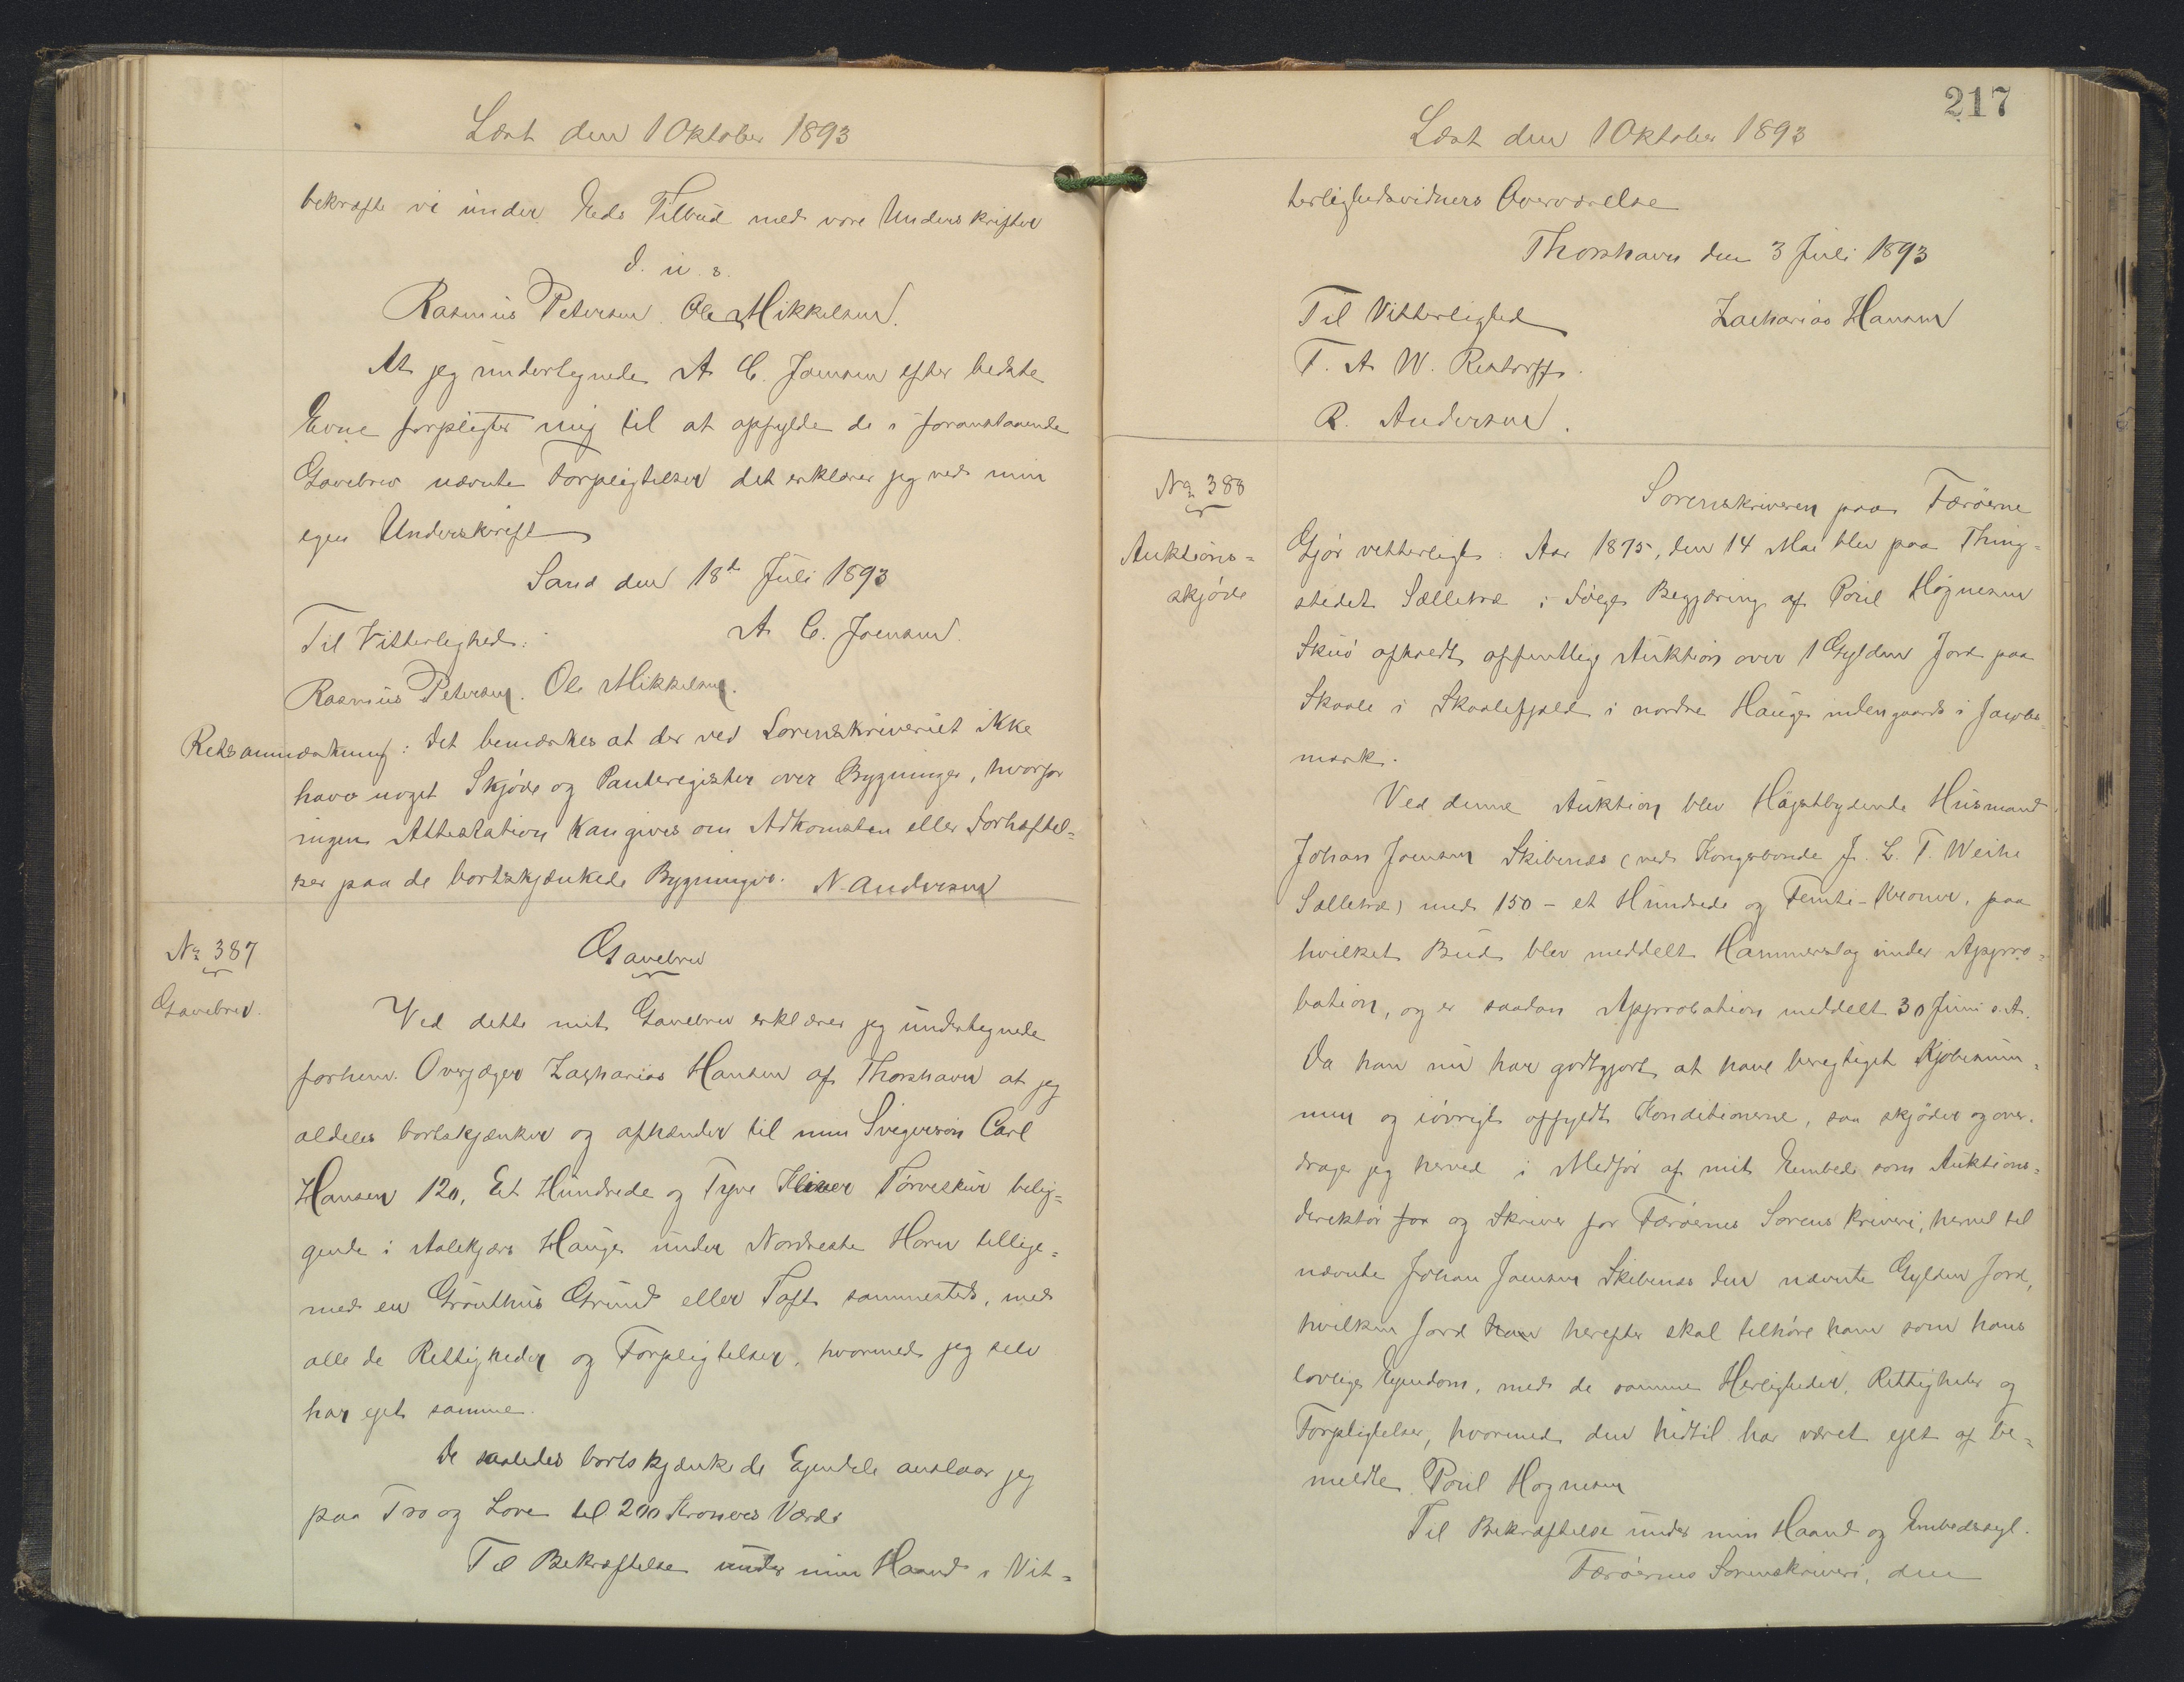 Læst den 1 Oktober 1893
bekræfte vi under Eds Tilbud med vore Underskrifter
d. u. s.
Rasmus Petersen. Ole Mikkelsen.
At jeg undertegnede A C. Joensen efter bedste
Evne forpligter mig til at opfylde de i foranstaaende
Gavebrev nævnte Forpligtelser det erklærer jeg ved min
egen Underskrift
Sand den 18de Juli 1893
Til Vitterlighed: A C. Joensen.
Rasmus Petersen. Ole Mikkelsen.
Retsanmærkning: Det bemærkes at der ved Sorenskriveriet ikke
haves noget Skjøde og Panteregister over Bygninger, hvorfor
ingen Attestation kan gives om Adkomsten eller Forhæftel=
ser paa de bortskjænkede Bygninger. N. Andersen
No 387
Gavebrev.
Gavebrev
Ved dette mit Gavebrev erklærer jeg undertegnede
forhenv. Overjæger Zacharias Hansen af Thorshavn at jeg
aldeles bortskjænker og afhænder til min Svigersøn Carl
Hansen 120, Et Hundrede og Tyve Kliver Tørveskur belig=
gende i Aalekjærs Hauge under Nordreste Horn tillige=
med en Grouthus Grund eller Toft sammesteds, med
alle de Rettigheder og Forpligtelser, hvormed jeg selv
har ejet samme.
De saaledes bortskjænkede Ejendele anslaar jeg
paa Tro og Love til 200 Kroners Værdi
Til Bekræftelse under min Haand i Vit=
217
Læst den 1 Oktober 1893
terlighedsvidners Overværelse
Thorshavn den 3 Juli 1893
Til Vitterlighed Zacharias Hansen
T. A W. Restorff.
R. Andersen.
No 388
Auktions=
skjøde
Sorenskriveren paa Færøerne
Gjør vitterligt: Aar 1875, den 14 Mai blev paa Thing=
stedet Sælletræ i Følge Begjæring af Poul Høgnesen
Skuø afholdt offentlig Auktion over 1 Gylden Jord paa
Skaale i Skaalefjæld i nordre Hauge indengaards i Jarples=
mark.
Ved denne Auktion blev Høgstbydende Husmand
Johan Joensen Skibenæs (ved Kongsbonde J. L. T. Weihe
Sælletræ) med 150 - et Hundrede og Femti - Kroner, paa
hvilket Bud blev meddelt Hammerslag under Appro=
bation, og er saadan Approbation meddelt 30 Juni s. A.
Da han nu har godtgjort at have berigtiget Kjøbesum=
men og iøvrigt opfyldt Konditionerne, saa skjøder og over=
drager jeg herved i Medfør af mit Embede som Auktions=
direktør for og Skriver for Færøernes Sorenskriveri, herved til
nævnte Johan Joensen Skibenæs den nævnte Gylden Jord,
hvilken Jord han herefter skal tilhøre ham som hans
lovlige Ejendom, med de samme Herligheder, Rettigheder og
Forpligtelser, hvormed den hidtil har været ejet af be=
meldte Poul Hognesen
Til Bekræftelse under min Haand og Embedssegl.
Færøernes Sorenskriveri, den